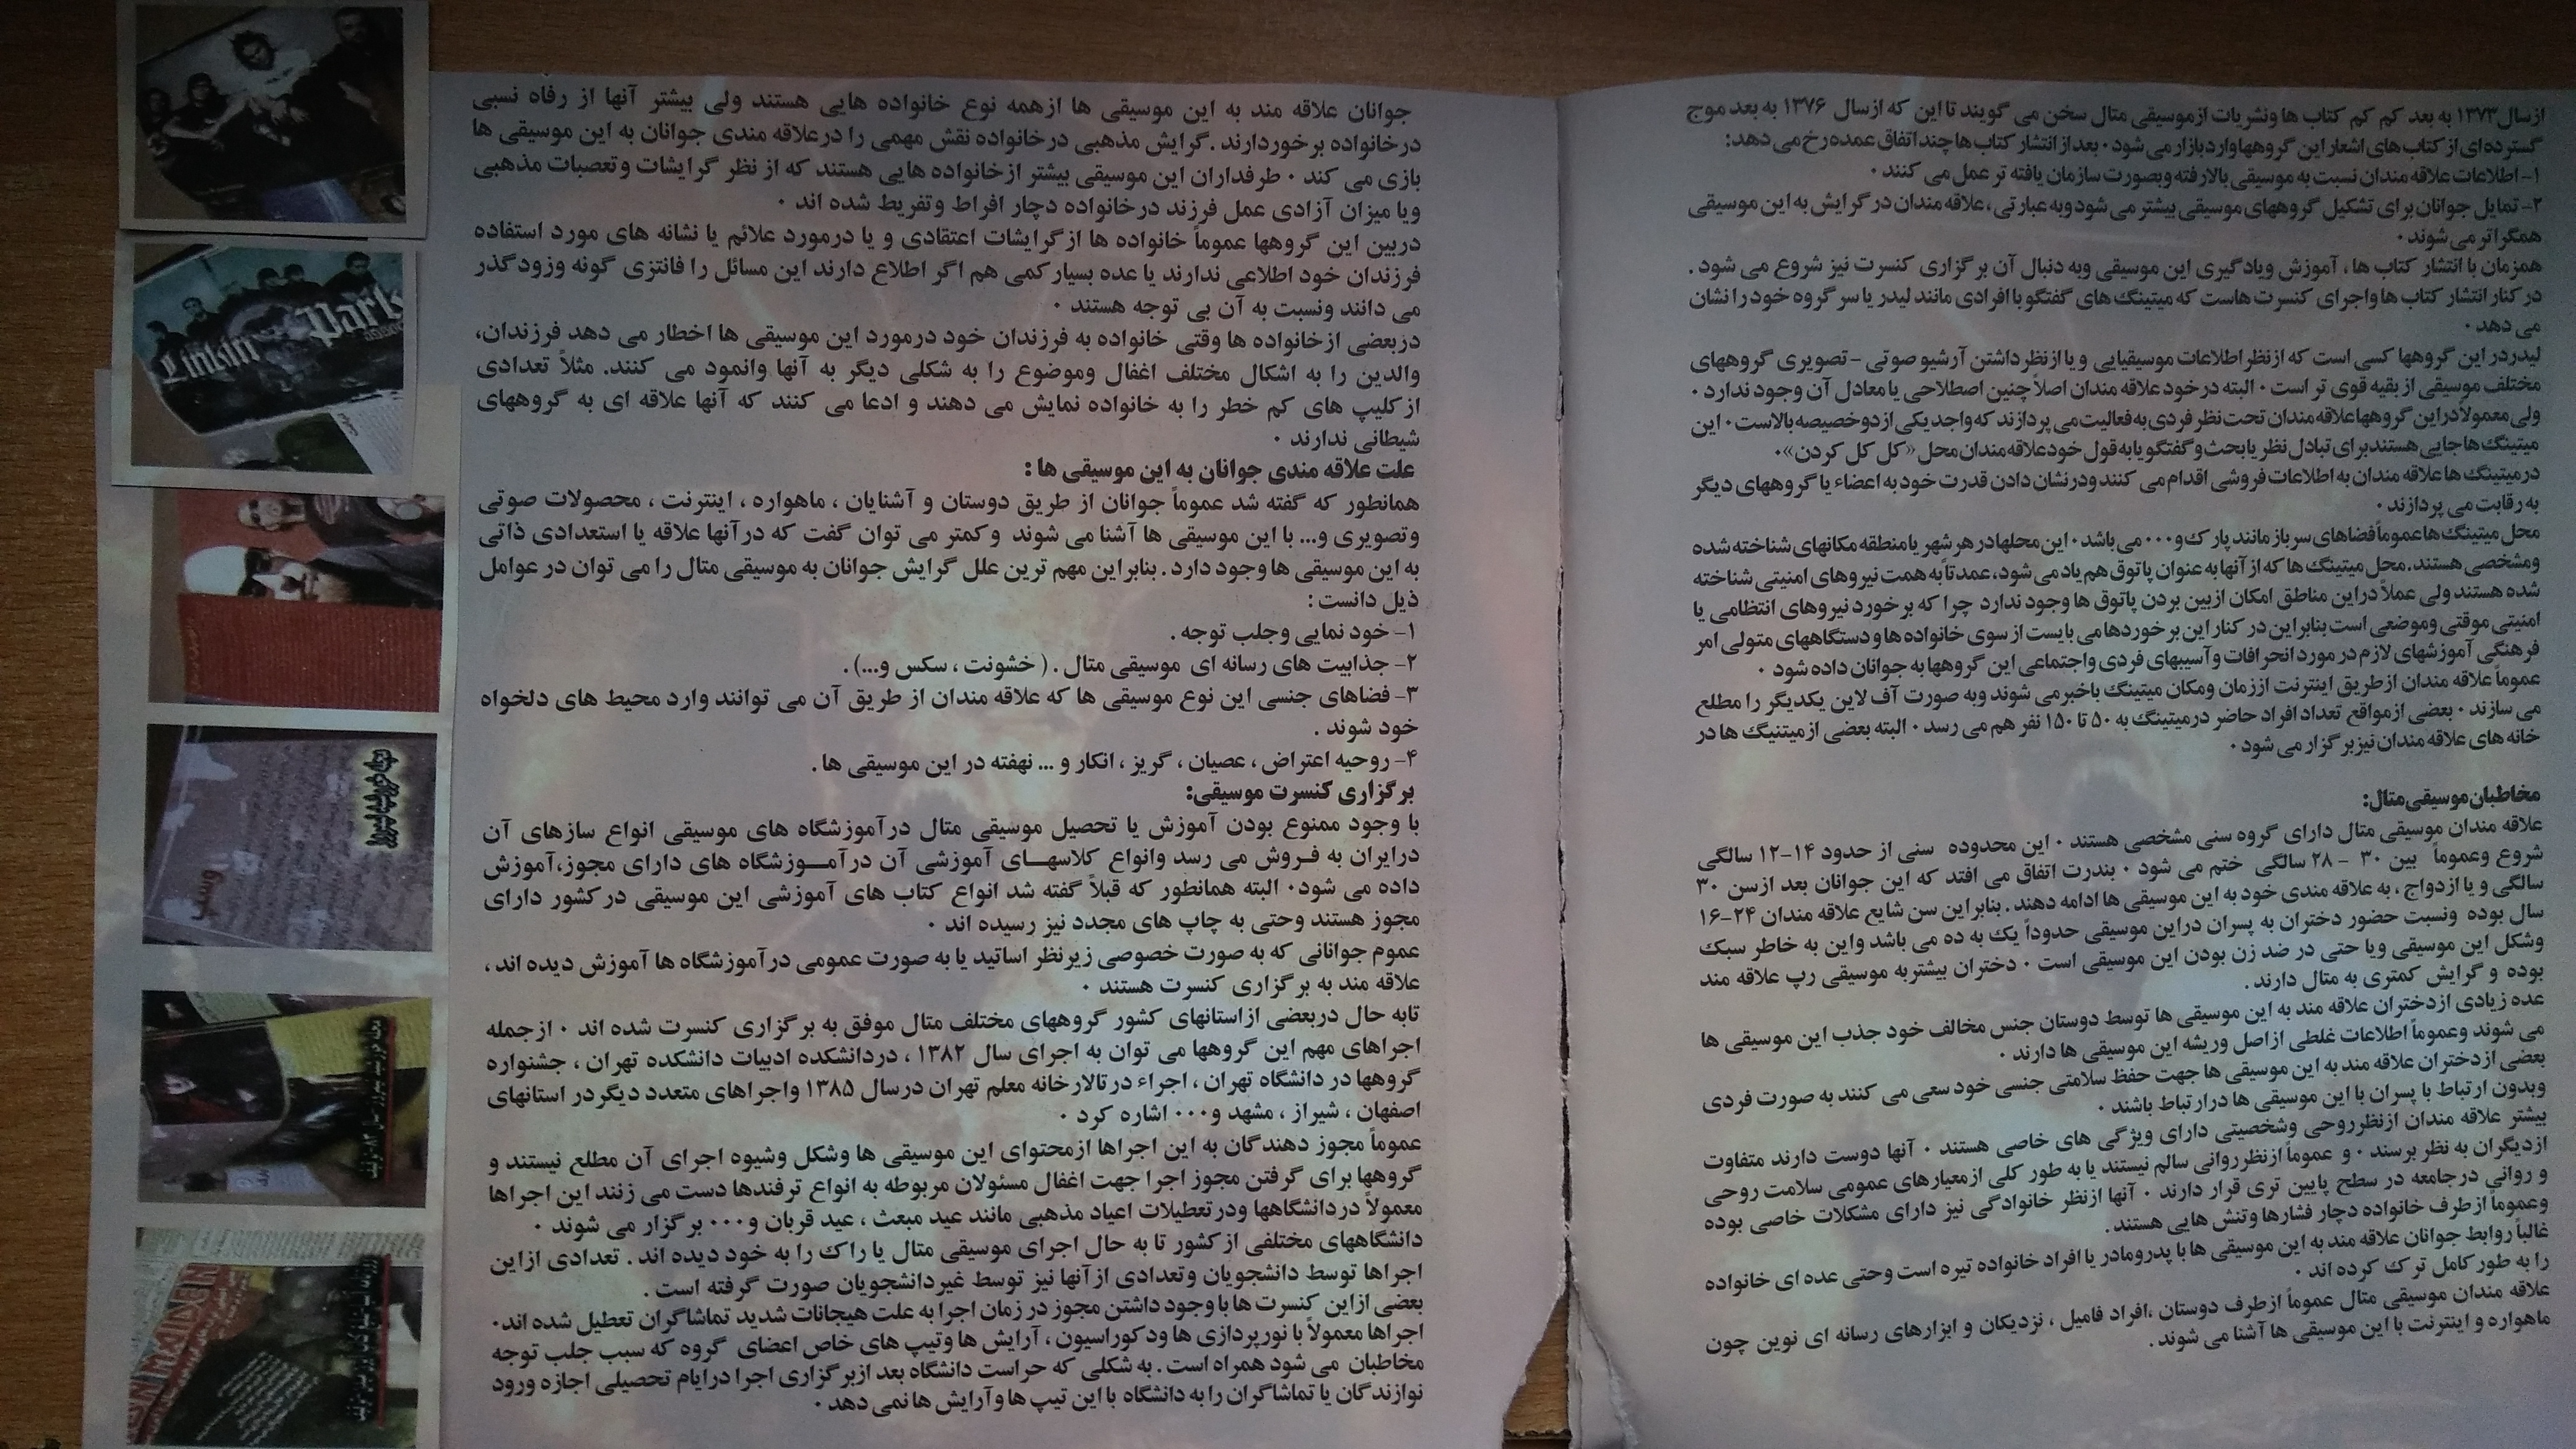 ازسال۱۳۷۳ به بعد کم کم کتاب ها ونشریات ازموسیقی متال سخن می گویند تا این که ازسال ۱۳۷۶ به بعد موج
گسترده ای از کتاب های اشعار این گروهها وارد بازار می شود۰ بعد از انتشار کتاب ها چند اتفاق عمده رخ می دهد:
۱- اطلاعات علاقه مندان نسبت به موسیقی بالا رفته وبصورت سازمان یافته تر عمل می کنند ۰
۲- تمایل جوانان برای تشکیل گروههای موسیقی بیشتر می شود وبه عبارتی، علاقه مندان در گرایش به این موسیقی
همگراتر می شوند۰
همزمان با انتشار کتاب ها، آموزش ویادگیری این موسیقی وبه دنبال آن برگزاری کنسرت نیز شروع می شود .
در کنار انتشار کتاب ها واجرای کنسرت هاست که میتینگ های گفتگو با افرادی مانند لیدر یا سر گروه خود را نشان
می دهد ۰
لیدردر این گروهها کسی است که ازنظر اطلاعات موسیقیایی و یا ازنظر داشتن آرشیو صوتی - تصویری گروههای
مختلف موسیقی از بقیه قوی تر است ۰ البته درخود علاقه مندان اصلاً چنین اصطلاحی یا معادل آن وجود ندارد ۰
ولی معمولاً دراین گروهها علاقه مندان تحت نظر فردی به فعالیت می پردازند که واجد یکی از دو خصیصه بالاست۰ این
میتینگ ها جایی هستند برای تبادل نظر یا بحث و گفتگو یا به قول خود علاقه مندان محل «کل کل کردن»۰
درمیتینگ ها علاقه مندان به اطلاعات فروشی اقدام می کنند ودر نشان دادن قدرت خود به اعضاء یا گروههای دیگر
به رقابت می پردازند ۰
محل میتینگ ها عموماً فضاهای سرباز مانند پارک و۰۰۰ می باشد ۰ این محلها در هر شهر یا منطقه مکانهای شناخته شده
ومشخصی هستند. محل میتینگ ها که از آنها به عنوان پاتوق هم یاد می شود، عمدتاً به همت نیروهای امنیتی شناخته
شده هستند ولی عملاً دراین مناطق امکان ازبین بردن پاتوق ها وجود ندارد چرا که برخورد نیروهای انتظامی یا
امنیتی موقتی وموضعی است بنابراین در کنار این برخوردها می بایست از سوی خانواده ها و دستگاههای متولی امر
فرهنگی آموزشهای لازم در مورد انحرافات و آسیبهای فردی واجتماعی این گروهها به جوانان داده شود ۰
عموماً علاقه مندان ازطریق اینترنت اززمان ومکان میتینگ باخبر می شوند وبه صورت آف لاین یکدیگر را مطلع
می سازند ۰ بعضی ازمواقع تعداد افراد حاضر درمیتینگ به ۵۰ تا ۱۵۰ نفر هم می رسد ۰ البته بعضی ازمیتنیگ ها در
خانه های علاقه مندان نیز برگزار می شود ۰
مخاطبان موسیقی متال:
علاقه مندان موسیقی متال دارای گروه سنی مشخصی هستند ۰ این محدوده سنی از حدود ۱۴-۱۲ سالگی
شروع وعموماً بین ۳۰ - ۲۸ سالگی ختم می شود ۰ بندرت اتفاق می افتد که این جوانان بعد ازسن ۳۰
سالگی و یا ازدواج ، به علاقه مندی خود به این موسیقی ها ادامه دهند . بنابراین سن شایع علاقه مندان ۲۴-۱۶
سال بوده ونسبت حضور دختران به پسران دراین موسیقی حدوداً یک به ده می باشد واین به خاطر سبک
وشکل این موسیقی ویا حتی در ضد زن بودن این موسیقی است ۰ دختران بیشتربه موسیقی رپ علاقه مند
بوده و گرایش کمتری به متال دارند .
عده زیادی ازدختران علاقه مند به این موسیقی ها توسط دوستان جنس مخالف خود جذب این موسیقی ها
می شوند وعموماً اطلاعات غلطی ازاصل وریشه این موسیقی ها دارند ۰
بعضی ازدختران علاقه مند به این موسیقی ها جهت حفظ سلامتی جنسی خود سعی می کنند به صورت فردی
وبدون ارتباط با پسران با این موسیقی ها درارتباط باشند ۰
بیشتر علاقه مندان ازنظرروحی وشخصیتی دارای ویژگی های خاصی هستند ۰ آنها دوست دارند متفاوت
ازدیگران به نظر برسند ۰ و عموماً ازنظر روانی سالم نیستند یا به طور کلی ازمعیارهای عمومی سلامت روحی
و روانی درجامعه در سطح پایین تری قرار دارند ۰ آنها ازنظر خانوادگی نیز دارای مشکلات خاصی بوده
وعموماً ازطرف خانواده دچار فشارها وتنش هایی هستند .
غالباً روابط جوانان علاقه مند به این موسیقی ها با پدرومادر یا افراد خانواده تیره است وحتی عده ای خانواده
را به طور کامل ترک کرده اند ۰
علاقه مندان موسیقی متال عموماً ازطرف دوستان ،افراد فامیل ، نزدیکان و ابزارهای رسانه ای نوین چون
ماهواره و اینترنت با این موسیقی ها آشنا می شوند .
جوانان علاقه مند به این موسیقی ها ازهمه نوع خانواده هایی هستند ولی بیشتر آنها از رفاه نسبی
درخانواده برخوردارند .گرایش مذهبی درخانواده نقش مهمی را درعلاقه مندی جوانان به این موسیقی ها
بازی می کند ۰ طرفداران این موسیقی بیشتر ازخانواده هایی هستند که از نظر گرایشات وتعصبات مذهبی
ویا میزان آزادی عمل فرزند درخانواده دچار افراط وتفریط شده اند ۰
دربین این گروهها عموماً خانواده ها ازگرایشات اعتقادی و یا درمورد علائم یا نشانه های مورد استفاده
فرزندان خود اطلاعی ندارند یا عده بسیار کمی هم اگر اطلاع دارند این مسائل را فانتزی گونه وزودگذر
می دانند ونسبت به آن بی توجه هستند ۰
دربعضی ازخانواده ها وقتی خانواده به فرزندان خود درمورد این موسیقی ها اخطار می دهد فرزندان،
والدین را به اشکال مختلف اغفال وموضوع را به شکلی دیگر به آنها وانمود می کنند. مثلاً تعدادی
از کلیپ های کم خطر را به خانواده نمایش می دهند و ادعا می کنند که آنها علاقه ای به گروههای
شیطانی ندارند ۰
علت علاقه مندی جوانان به این موسیقی ها :
همانطور که گفته شد عموماً جوانان از طریق دوستان و آشنایان ، ماهواره ، اینترنت ، محصولات صوتی
وتصویری و... با این موسیقی ها آشنا می شوند و کمتر می توان گفت که درآنها علاقه یا استعدادی ذاتی
به این موسیقی ها وجود دارد . بنابراین مهم ترین علل گرایش جوانان به موسیقی متال را می توان در عوامل
ذیل دانست :
۱- خود نمایی وجلب توجه .
۲- جذابیت های رسانه ای موسیقی متال . ( خشونت ، سکس و...) .
۳- فضاهای جنسی این نوع موسیقی ها که علاقه مندان از طریق آن می توانند وارد محیط های دلخواه
خود شوند .
۴- روحیه اعتراض ، عصیان ، گریز ، انکار و ... نهفته در این موسیقی ها .
برگزاری کنسرت موسیقی:
با وجود ممنوع بودن آموزش یا تحصیل موسیقی متال درآموزشگاه های موسیقی انواع سازهای آن
درایران به فروش می رسد وانواع کلاسهای آموزشی آن درآموزشگاه های دارای مجوز،آموزش
داده می شود۰ البته همانطور که قبلاً گفته شد انواع کتاب های آموزشی این موسیقی در کشور دارای
مجوز هستند وحتی به چاپ های مجدد نیز رسیده اند ۰
عموم جوانانی که به صورت خصوصی زیرنظر اساتید یا به صورت عمومی درآموزشگاه ها آموزش دیده اند ،
علاقه مند به برگزاری کنسرت هستند ۰
تابه حال دربعضی ازاستانهای کشور گروههای مختلف متال موفق به برگزاری کنسرت شده اند ۰ ازجمله
اجراهای مهم این گروهها می توان به اجرای سال ۱۳۸۲ ، دردانشکده ادبیات دانشکده تهران ، جشنواره
گروهها در دانشگاه تهران ، اجراء در تالارخانه معلم تهران درسال ۱۳۸۵ واجراهای متعدد دیگردر استانهای
اصفهان ، شیراز ، مشهد و۰۰۰ اشاره کرد ۰
عموماً مجوز دهندگان به این اجراها ازمحتوای این موسیقی ها وشکل وشیوه اجرای آن مطلع نیستند و
گروهها برای گرفتن مجوز اجرا جهت اغفال مسئولان مربوطه به انواع ترفندها دست می زنند این اجراها
معمولاً دردانشگاهها ودر تعطیلات اعیاد مذهبی مانند عید مبعث ، عید قربان و۰۰۰ برگزار می شوند ۰
دانشگاههای مختلفی ازکشور تا به حال اجرای موسیقی متال یا راک را به خود دیده اند . تعدادی ازاین
اجراها توسط دانشجویان وتعدادی از آنها نیز توسط غیردانشجویان صورت گرفته است .
بعضی ازاین کنسرت ها با وجود داشتن مجوز در زمان اجرا به علت هیجانات شدید تماشاگران تعطیل شده اند۰
اجراها معمولاً با نورپردازی ها ودکوراسیون ، آرایش ها وتیپ های خاص اعضای گروه که سبب جلب توجه
مخاطبان می شود همراه است . به شکلی که حراست دانشگاه بعد ازبرگزاری اجرا درایام تحصیلی اجازه ورود
نوازندگان یا تماشاگران را به دانشگاه با این تیپ ها وآرایش ها نمی دهد ۰
Linkin Park
IRON MAIDEN